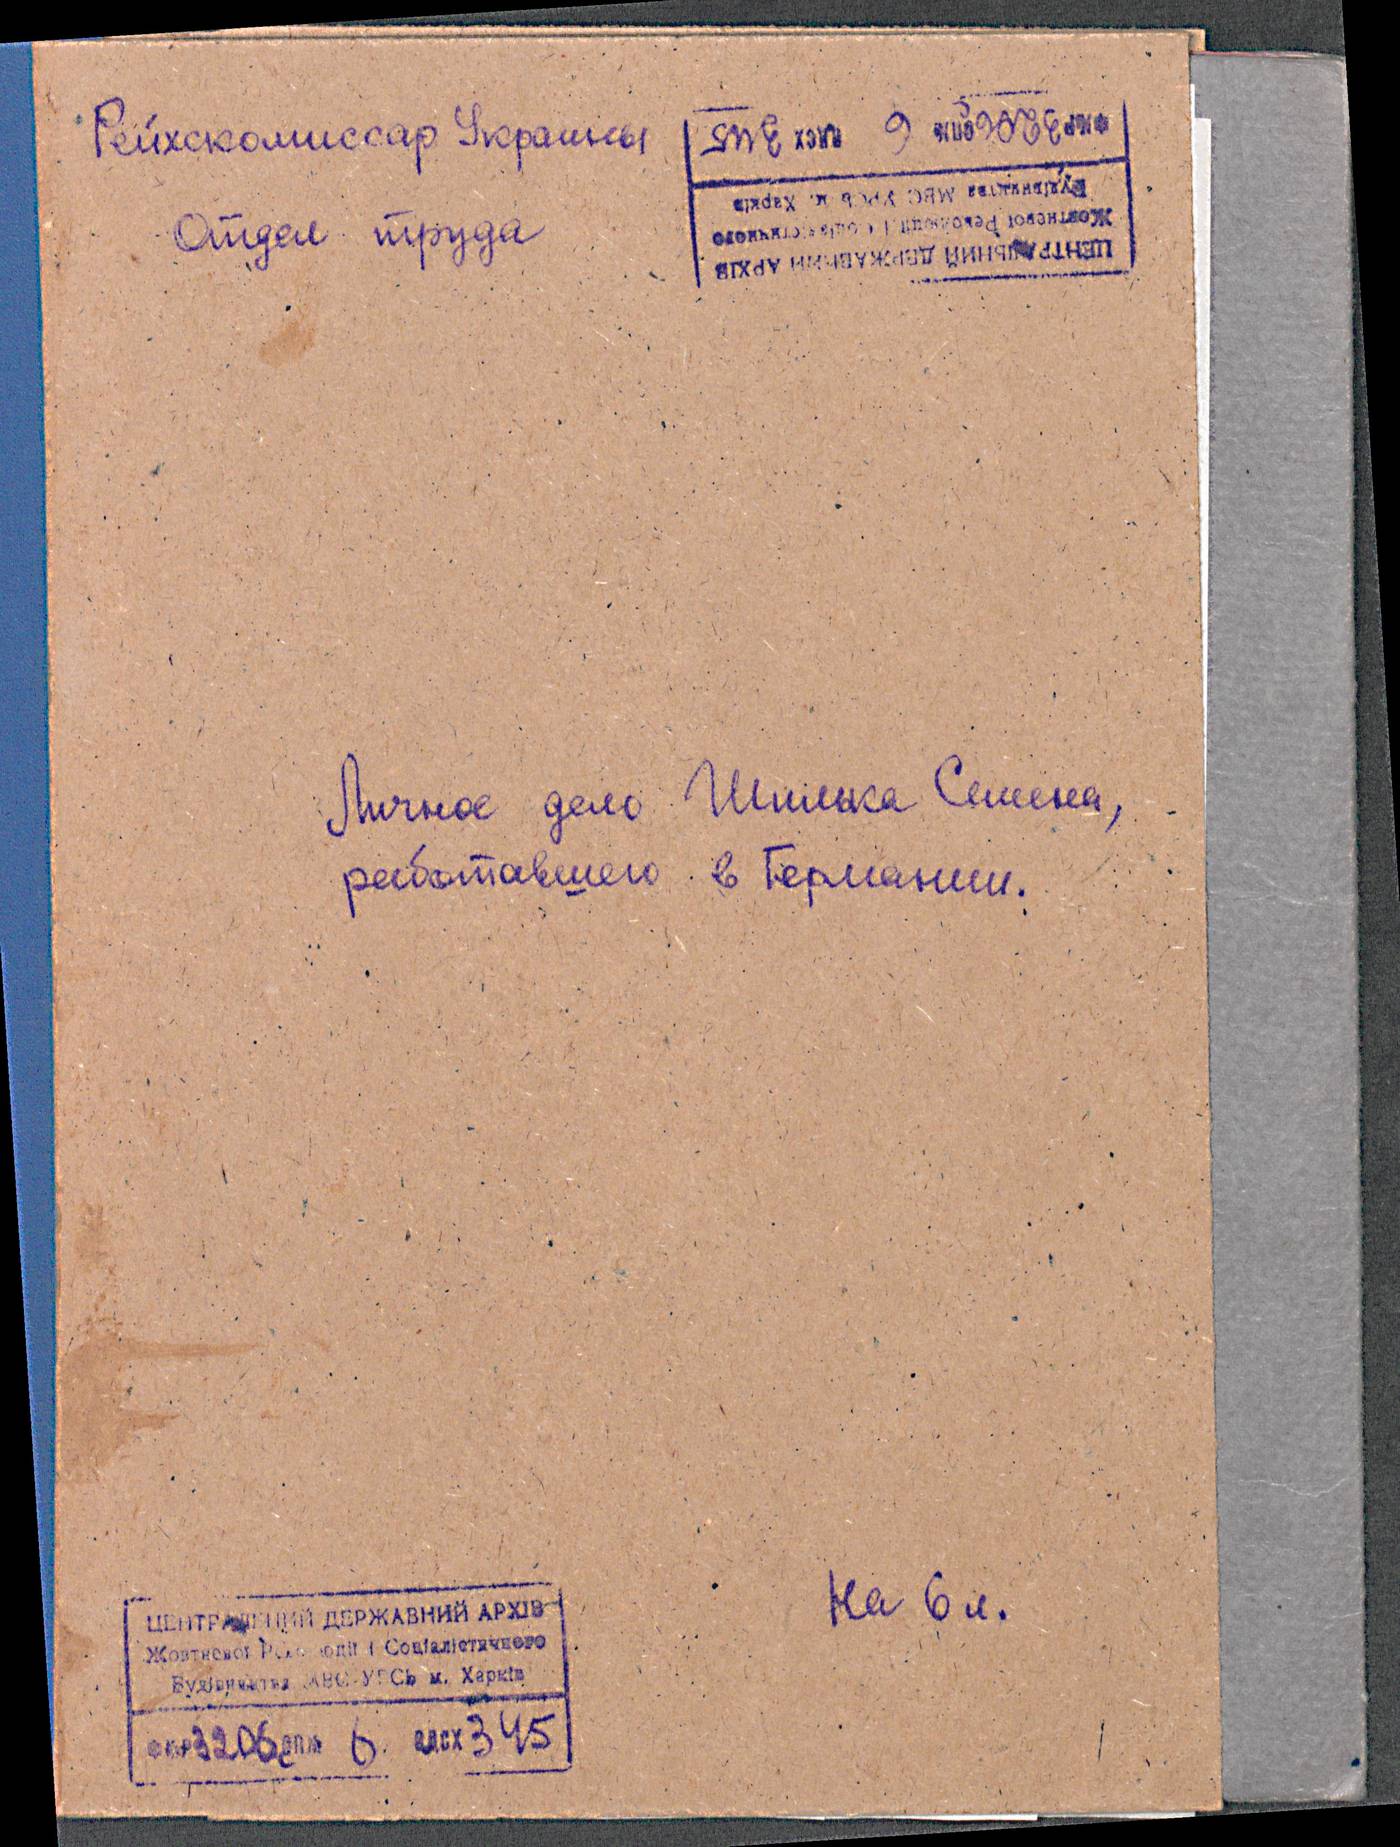 Рейхскомиссар Украины
Отдел труда
ФКР 3206 ОП№ 6 ОДСХ 345
ЦЕНТРАЛЬНИЙ ДЕРЖАВНИЙ АРХІВ
Жовтневої Революції і Соціалістичного
Будівництва МВС УРСР м. Харків
Личное дело Шпилька Семена,
работавшего в Германии.
На 6 л.
ЦЕНТРАЛЬНИЙ ДЕРЖАВНИЙ АРХІВ
Жовтневої Революції і Соціалістичного
Будівництва МВС УРСР м. Харків
3206 6 345